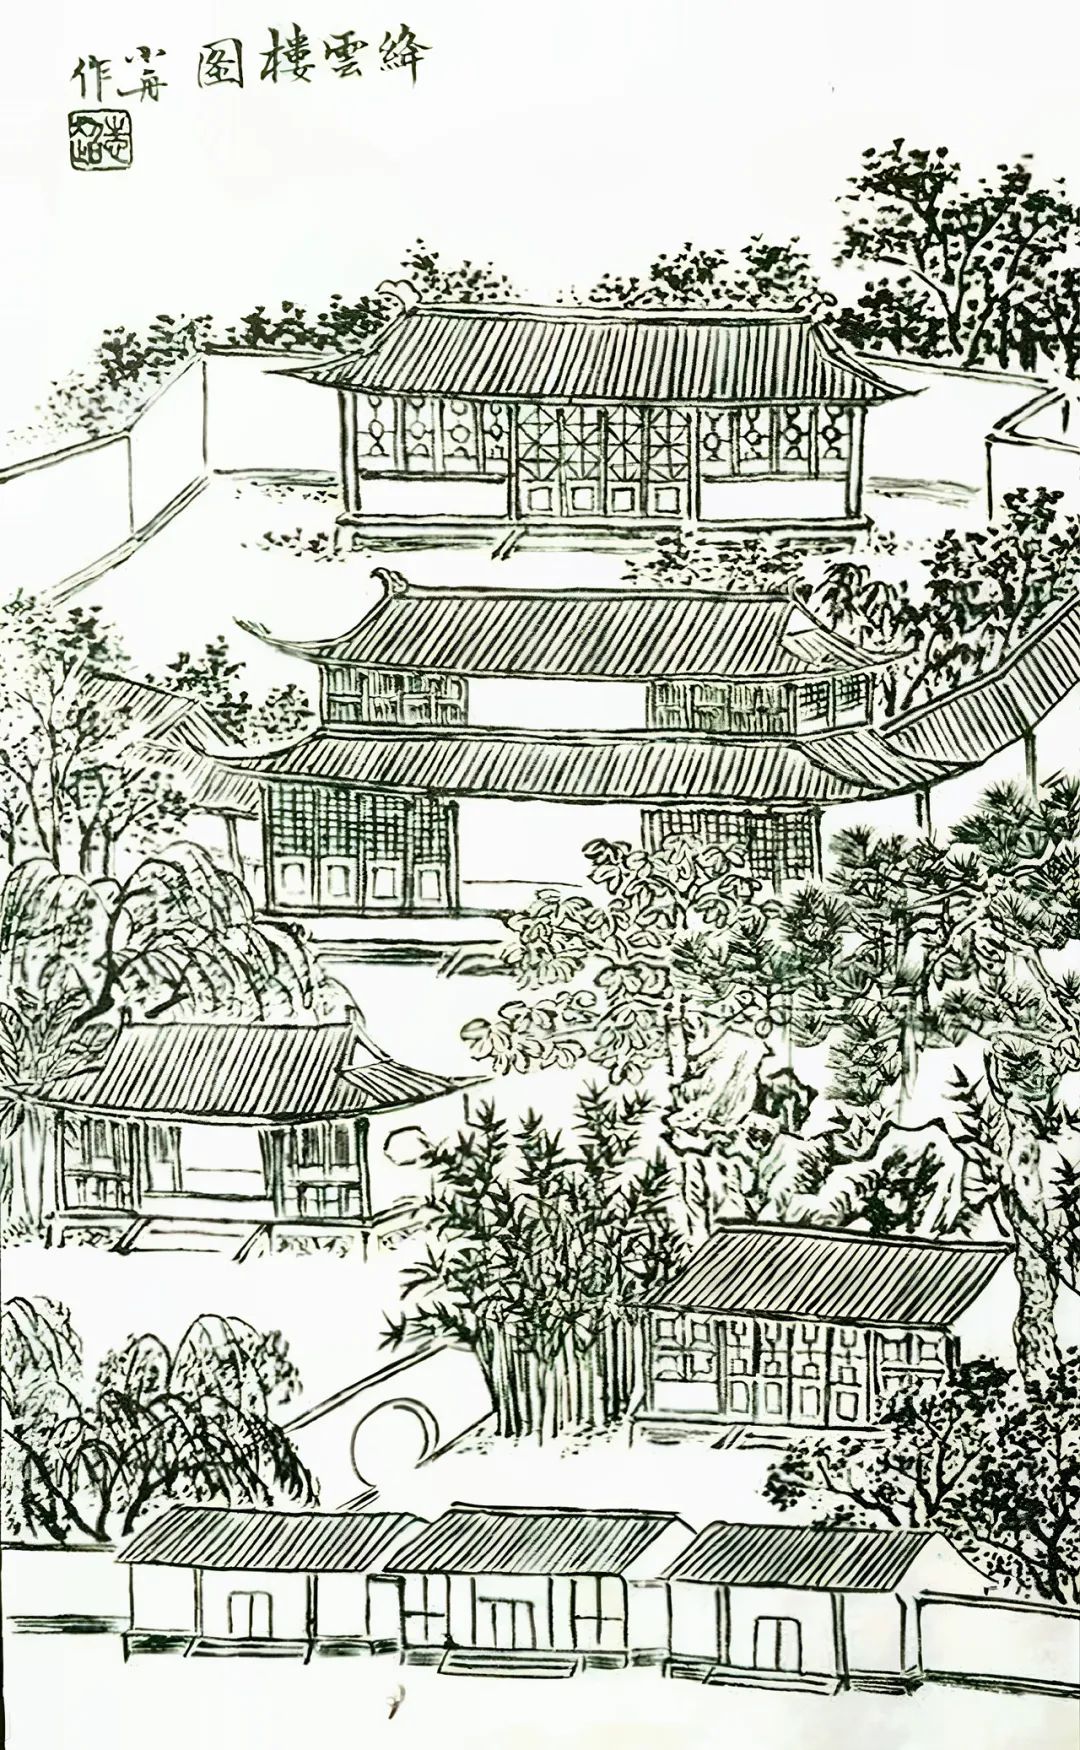 絳雲樓图 小舟作